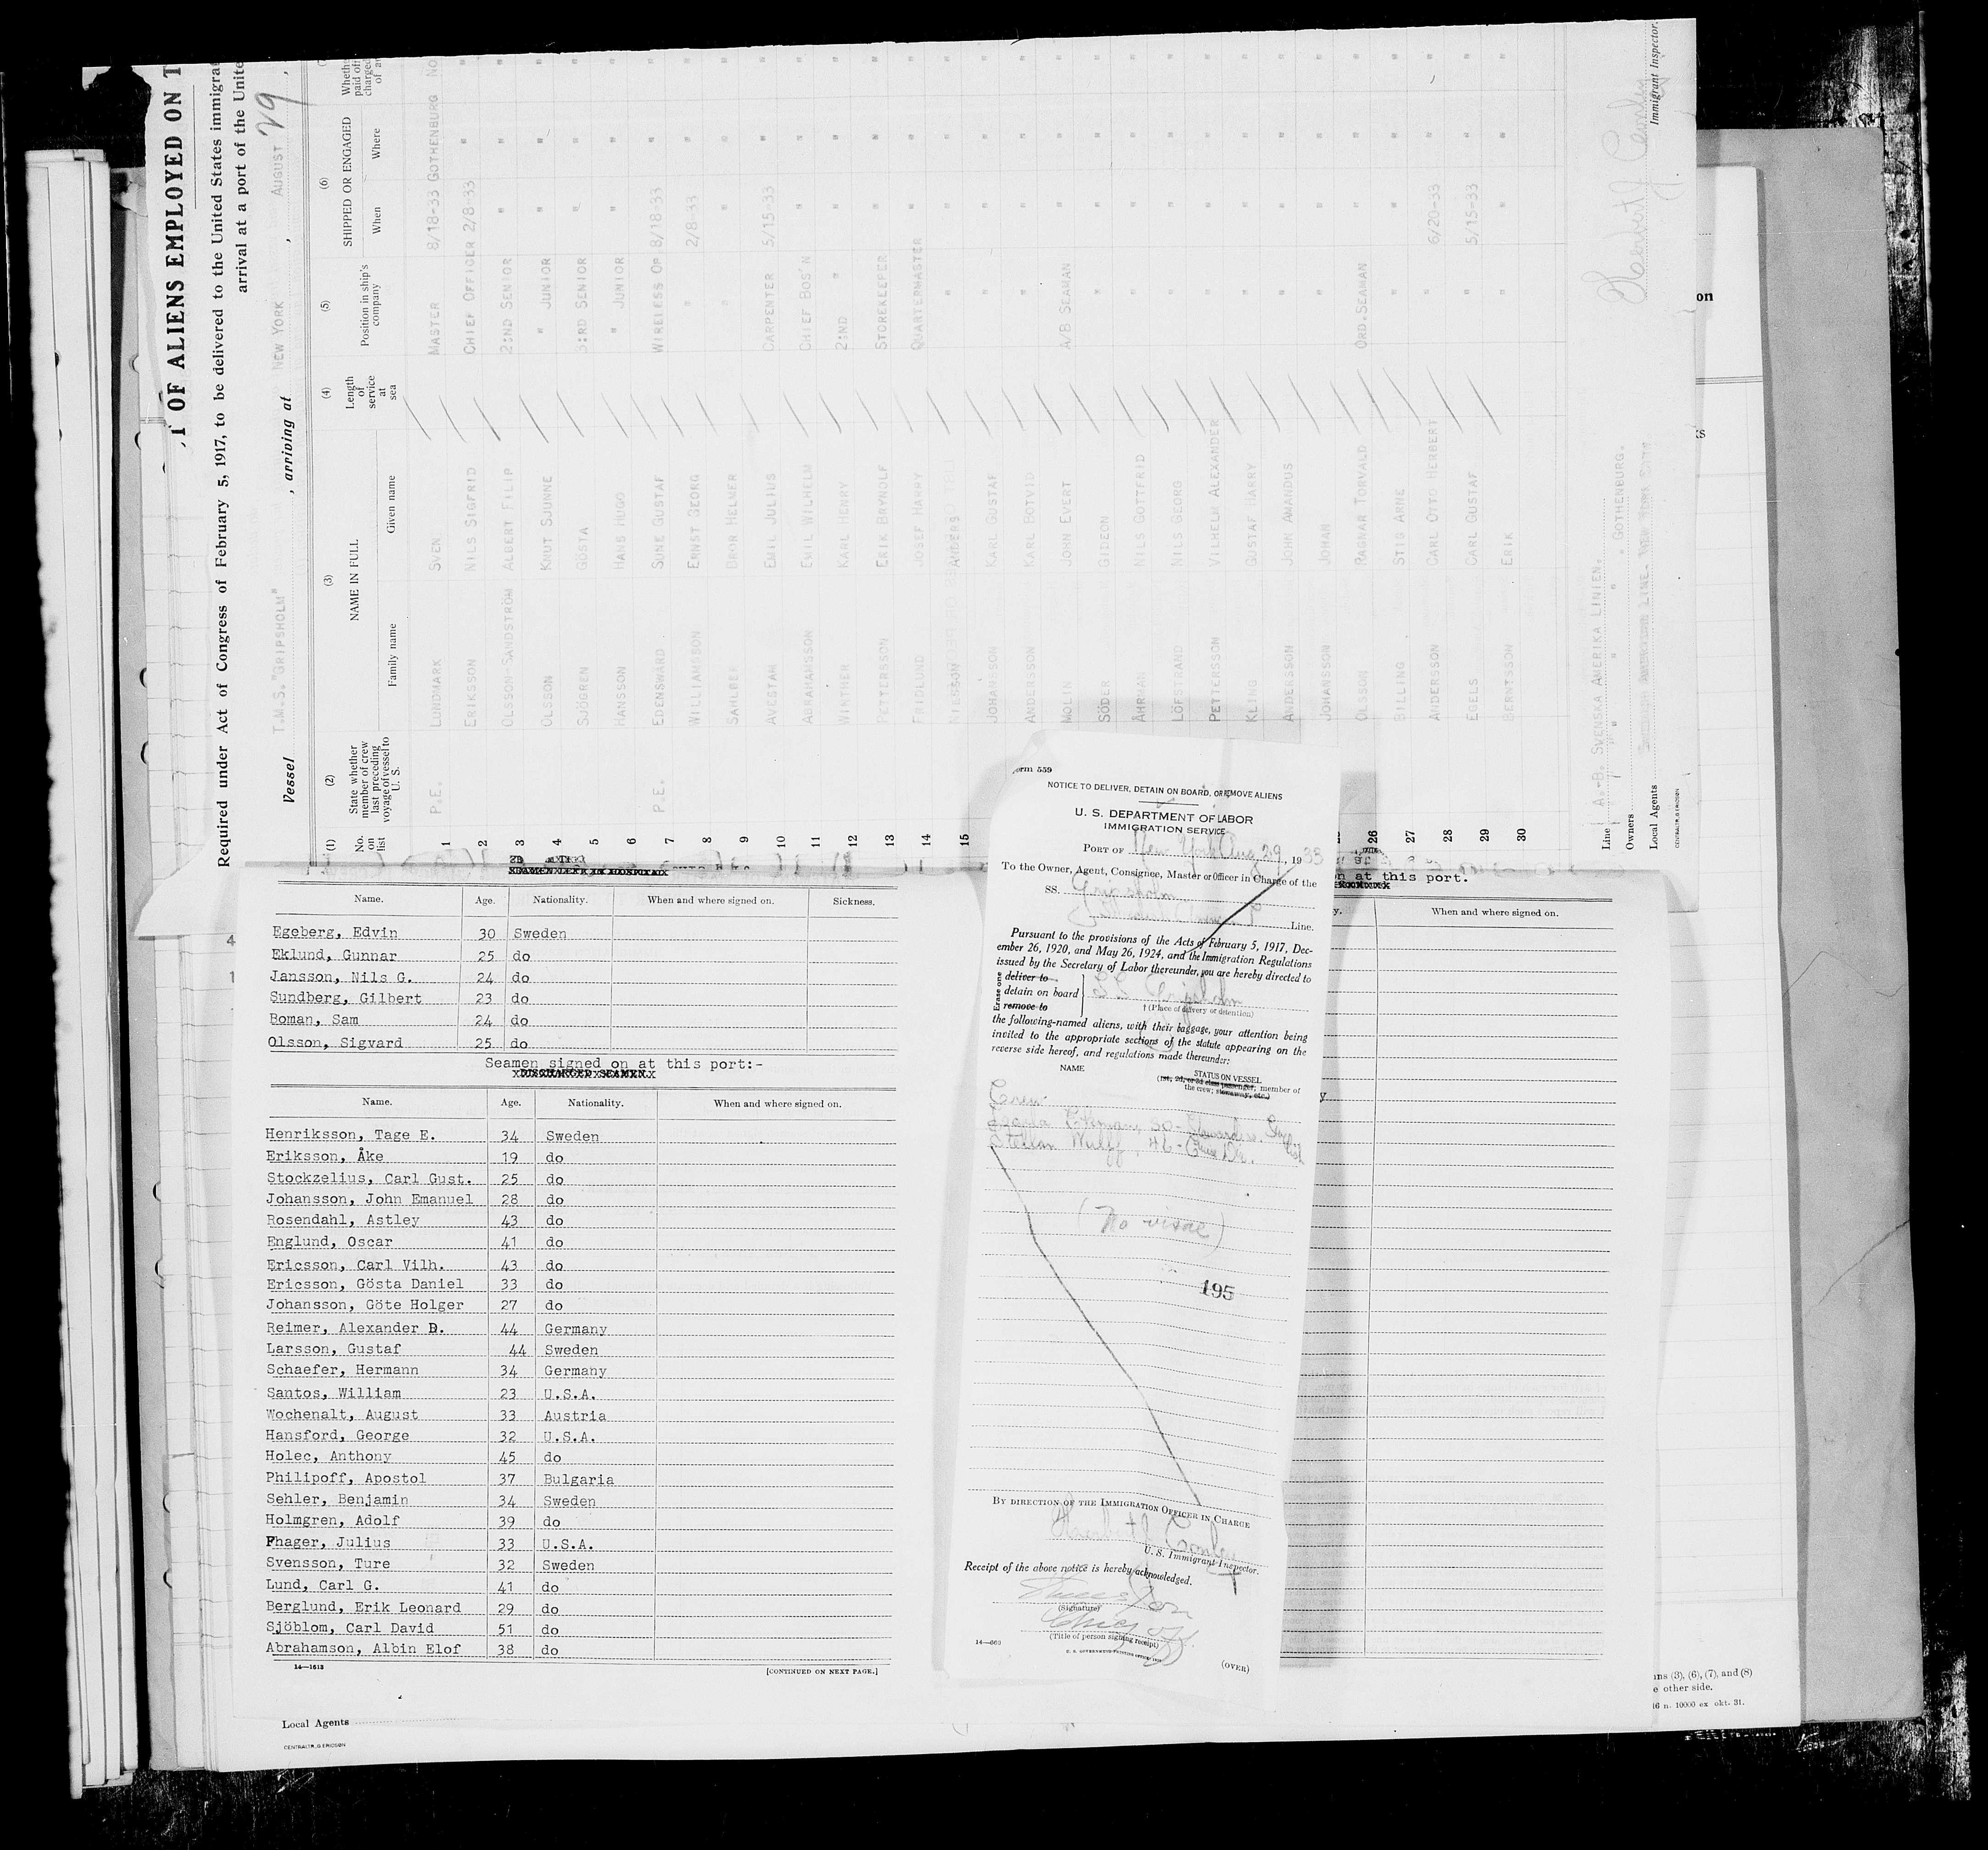 T OF ALIENS EMPLOYED ON T
Required under Act of Congress of February 5, 1917, to be delivered to the United States immigra
arrival at a port of the Unite
Vessel T.M.S."GRIPSHOLM", arriving at NEW YORK, AUGUST 29,
(1) (2) (3) (4) (5) (6)
No. on list
State whether member of crew last preceding voyage of vessel to U. S.
NAME IN FULL
Family name Given name
Length of service at sea
Position in ship's company
SHIPPED OR ENGAGED
When Where
1 P.E. LUNDMARK SVEN MASTER 8/18-33 GOTHENBURG NO
2 ERIKSSON NILS SIGFRID CHIEF OFFICER 2/8-33 " "
3 OLSSON SANDSTRÖM ALBERT FILIP 2:ND SENIOR " " "
4 OLSSON KNUT SJUNNE " JUNIOR " " "
5 SJÖGREN GÖSTA 3:RD SENIOR " " "
6 HANSSON HANS HUGO " JUNIOR " " "
7 P.E. EDENSWARD SUNE GUSTAF WIRELESS OP 8/18-33 " "
8 WILLIAMSSON ERNST GEORG " 2/8-33 " "
SAHLBER BROR HELMER " " " "
9 AVESTAM EMIL JULIUS CARPENTER 5/15-33 " "
10 ABRAHAMSSON EMIL WILHELM CHIEF BOS'N " " "
11 WINTHER KARL HENRY 2:ND " " " "
12 PETTERSSON ERIK BRYNOLF STOREKEEPER " " "
13 FRIDLUND JOSEF HARRY QUARTERMASTER " " "
14 NILSSON ANDERS " " " "
15 JOHANSSON KARL GUSTAF " " " "
ANDERSSON KARL BOTVID " " " "
MOLIN JOHN EVERT A/B SEAMAN " " "
SÖDER GIDEON " " " "
ÅHRMAN NILS GOTTFRID " " " "
LÖFSTRAND NILS GEORG " " " "
PETTERSSON VILHELM ALEXANDER " " " "
KLING GUSTAF HARRY " " " "
ANDERSON JOHN AMANDUS " " " "
JOHANSON JOHAN " " " "
26 OLSSON RAGNAR TORVALD ORD.SEAMAN " " "
27 BILLING STIG ARNE " " " "
28 ANDERSSON CARL OTTO HERBERT " 6/20-33 " "
29 EGELS CARL GUSTAF " 5/15-33 " "
30 BERNTSSON ERIK " " " "
Line A.-B. SVENSKA AMERIKA LINIEN.
Owners " " " , GOTHENBURG.
Local Agents
CENTRALTR., G ERICSON
Immigrant Inspector.
Name. Age. Nationality. When and where signed on. Sickness.
Egeberg, Edvin 30 Sweden
Eklund, Gunnar 25 do
Jansson, Nils G. 24 do
Sundberg, Gilbert 23 do
Boman, Sam 24 do
Olsson, Sigvard 25 do
Seamen signed on at this port:-
DISCHARGED SEAMEN.
Name. Age. Nationality. When and where signed on.
Henriksson, Tage E. 34 Sweden
Eriksson, Åke 19 do
Stockzelius, Carl Gust. 25 do
Johansson, John Emanuel 28 do
Rosendahl, Astley 43 do
Englund, Oscar 41 do
Ericsson, Carl Vilh. 43 do
Ericsson, Gösta Daniel 33 do
Johansson, Göte Holger 27 do
Reimer, Alexander D. 44 Germany
Larsson, Gustaf 44 Sweden
Schaefer, Hermann 34 Germany
Santos, William 23 U.S.A.
Wochenalt, August 33 Austria
Hansford, George 32 U.S.A.
Holec, Anthony 45 do
Philipoff, Apostol 37 Bulgaria
Sehler, Benjamin 34 Sweden
Holmgren, Adolf 39 do
Fhager, Julius 33 U.S.A.
Svensson, Ture 32 Sweden
Lund, Carl G. 41 do
Berglund, Erik Leonard 29 do
Sjöblom, Carl David 51 do
Abrahamson, Albin Elof 38 do
14—1613 [CONTINUED ON NEXT PAGE.]
Local Agents
CENTRALTR., G ERICSON
Form 559
NOTICE TO DELIVER, DETAIN ON BOARD, OR REMOVE ALIENS
U. S. DEPARTMENT OF LABOR
IMMIGRATION SERVICE
PORT OF New York Aug 29, 1933
To the Owner, Agent, Consignee, Master or Officer in Charge of the
SS. Gripsholm
Line.
Pursuant to the provisions of the Acts of February 5, 1917, Dec-
ember 26, 1920, and May 26, 1924, and the Immigration Regulations
issued by the Secretary of Labor thereunder, you are hereby directed to
Erase one
deliver to
detain on board SS Gripsholm
remove to
† (Place of delivery or detention)
the following-named aliens, with their baggage, your attention being
invited to the appropriate sections of the statute appearing on the
reverse side hereof, and regulations made thereunder:
NAME STATUS ON VESSEL
(1st, 2d, or 3d class passenger, member of
the crew; stowaway, etc.)
Crew
Stellan Wulff, 46 - Cruise Dir.
(No visae)
195
BY DIRECTION OF THE IMMIGRATION OFFICER IN CHARGE
U. S. Immigrant Inspector.
Receipt of the above notice is hereby acknowledged.
(Signature)
Chief Off.
(Title of person signing receipt)
U. S. GOVERNMENT PRINTING OFFICE
(OVER)
n at this port.
y. When and where signed on.
on
ks
ns (3), (6), (7), and (8)
e other side.
16 n. 10000 ex okt. 31.